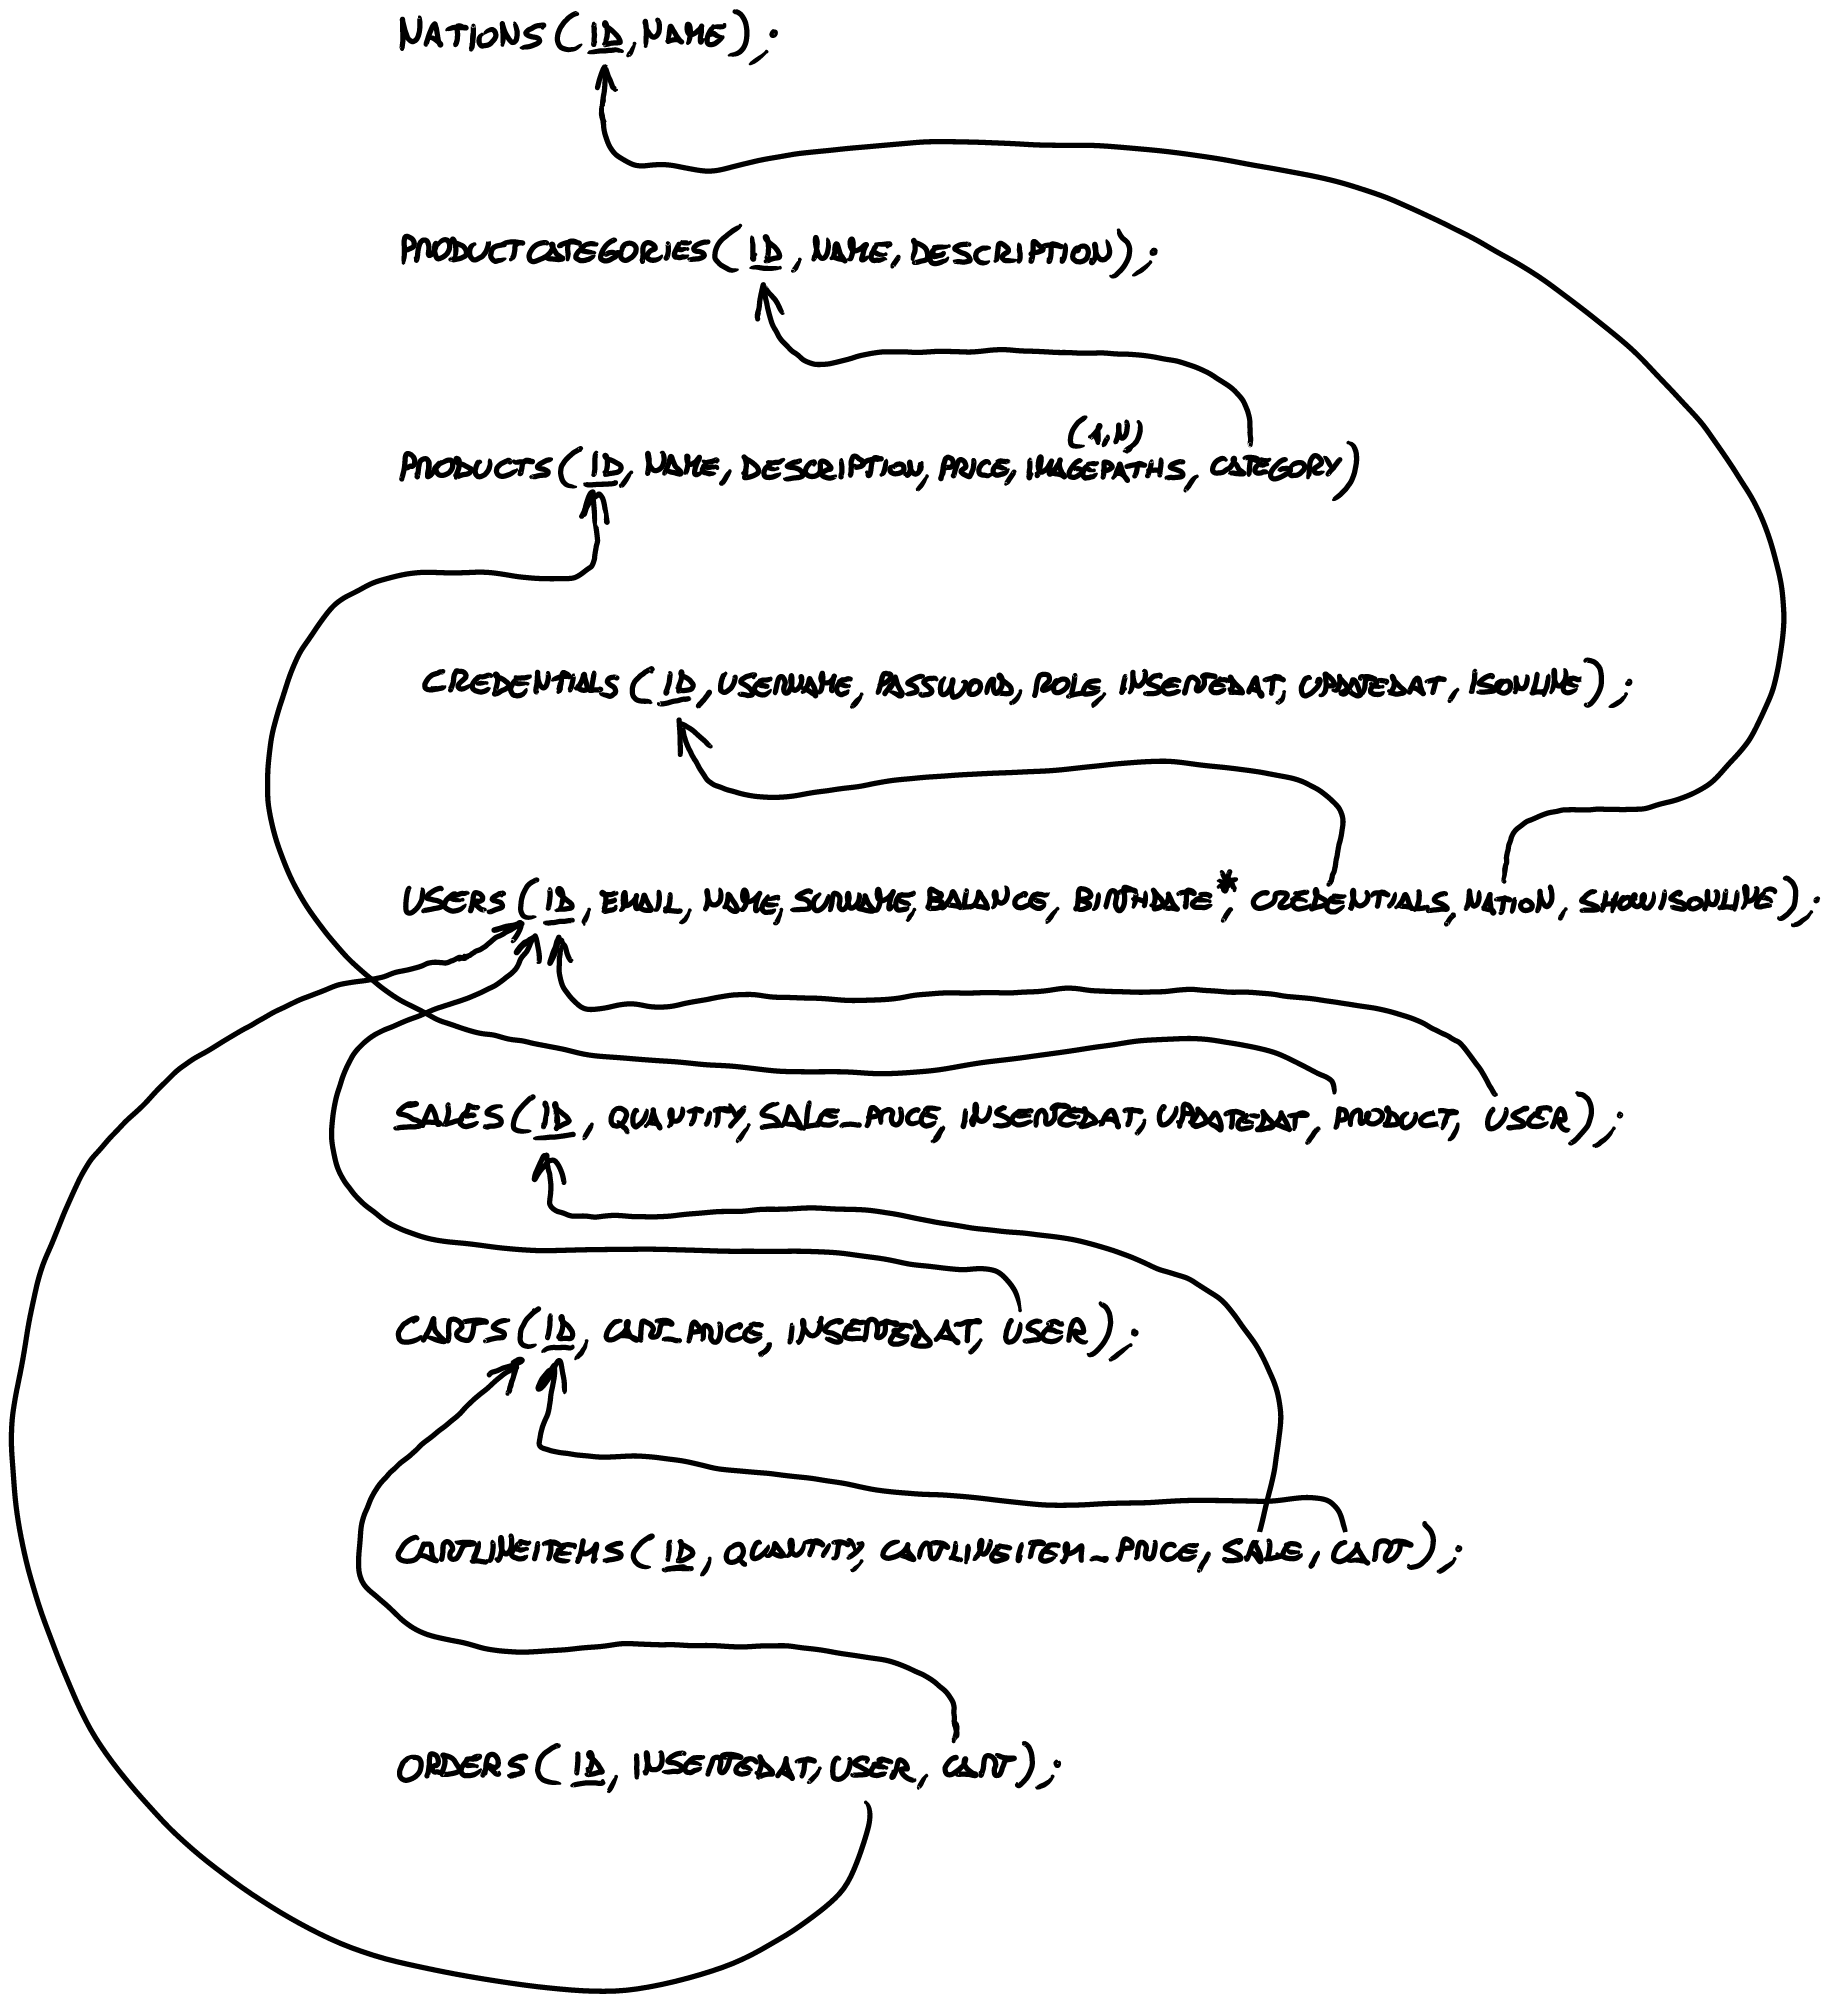 NATIONS(ID, NAME);
PRODUCTCATEGORIES(ID, NAME, DESCRIPTION);
(1,N)
PRODUCTS(ID, NAME, DESCRIPTION, PRICE, IMAGEPATHS, CATEGORY)
CREDENTIALS(ID, USERNAME, PASSWORD, ROLE, INSERTEDAT, UPDATEDAT, ISONLINE);
USERS(ID, EMAIL, NAME, SURNAME, BALANCE, BIRTHDATE*, CREDENTIALS, NATION, SHOWISONLINE);
SALES(ID, QUANTITY, SALE_PRICE, INSERTEDAT, UPDATEDAT, PRODUCT, USER);
CARTS(ID, CART_PRICE, INSERTEDAT, USER);
CARTLINEITEMS(ID, QUANTITY, CARTLINEITEM_PRICE, SALE, CART);
ORDERS(ID, INSERTEDAT, USER, CART);